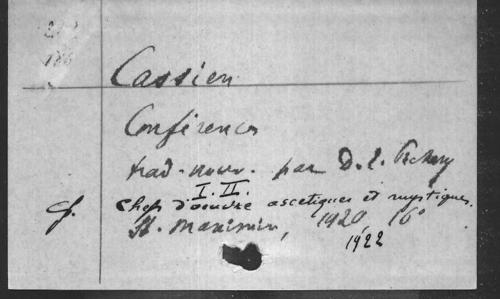 Cassien
Conférences
trad. nouv. par D. E. Pichery
I. II.
cf. Chefs d'oeuvre ascétiques et mystiques.
St. Maximin, 1920 16°
1922